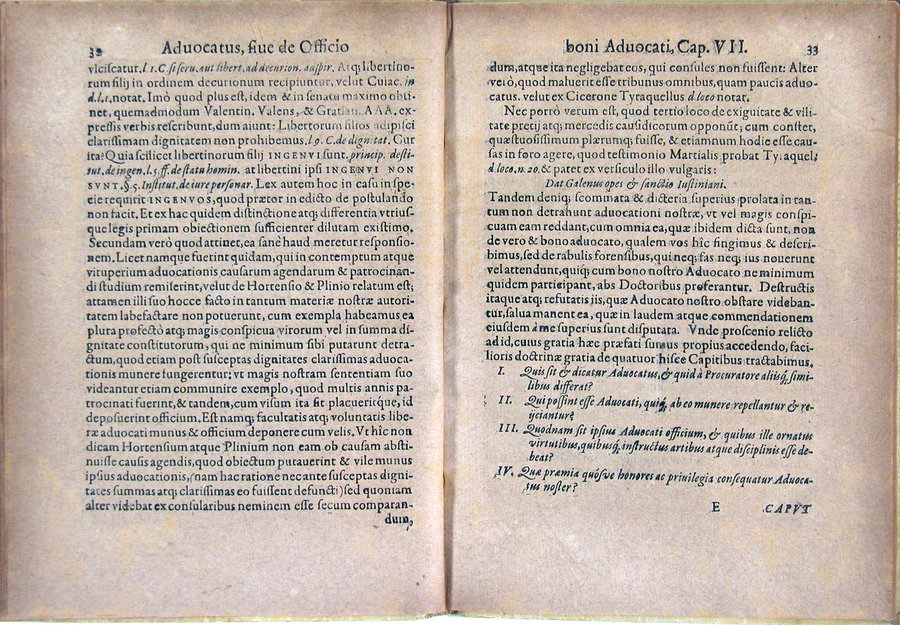 32 Aduocatus, siue de Officio
vlciscatur. l. 1. C. si seru. aut libert. ad decurion. aspir. Atq; libertino-
rum filij in ordinem decurionum recipiuntur, velut Cuiac. in
d. l. 1. notat. Imò quod plus est, idem & in senatu maximo obti-
net, quemadmodum Valentin. Valens, & Gratian. AAA. ex-
pressis verbis rescribunt, dum aiunt: Libertorum filios adipisci
clarissimam dignitatem non prohibemus. l. 9. C. de dignitat. Cur
ita? Quia scilicet libertinorum filij INGENVI sunt. princip. & tit.
tut. de ingen. l. 5. ff. de statu homin. at libertini ipsi INGENVI NON
SVNT. §. 5. Institut. de iure personar. Lex autem hoc in casu in spe-
cie requirit INGENVOS, quod prætor in edicto de postulando
non facit, Et ex hac quidem distinctione atq; differentia vtrius-
que legis primam obiectionem sufficienter dilutam existimo.
Secundam verò quod attinet, ea sanè haud meretur responsio-
nem. Licet namque fuerint quidam, qui in contemptum atque
vituperium aduocationis causarum agendarum & patrocinan-
di studium remiserint, velut de Hortensio & Plinio relatum est,
attamen illi suo hocce facto in tantum materiæ nostræ autori-
tatem labefactare non potuerunt, cum exempla habeamus ea
plura profectò atq; magis conspicua virorum vel in summa di-
gnitate constitutorum, qui ne minimum sibi putarunt detra-
ctum, quod etiam post susceptas dignitates clarissimas aduoca-
tionis munere fungerentur; vt magis nostram sententiam suo
videantur etiam communire exemplo, quod multis annis pa-
trocinati fuerint, & tandem, cum visum ita sit placueritque, id
deposuerint officium. Est namq; facultatis atq; voluntatis libe-
ræ aduocati munus & officium deponere cum velis. Vt hic non
dicam Hortensium atque Plinium non eam ob causam absti-
nuisse causis agendis, quod obiectum putauerint & vile munus
ipsius aduocationis, (nam hac ratione necante susceptas digni-
tates summas atq; clarissimas eo fuissent defuncti) sed quoniam
alter videbat ex consularibus neminem esse secum comparan-
dum,
boni Aduocati, Cap. VII. 33
dum, atque ita negligebat eos, qui consules non fuissent: Alter
verò, quod maluerit esse tribunus omnibus, quam paucis aduo-
catus. velut ex Cicerone Tyraquellus d. loco notat.
Nec porrò verum est, quod tertio loco de exiguitate & vili-
tate pretij atq; mercedis causidicorum opponūt; cum constet,
quæstuosissimum plærumq; fuisse, & etiamnum hodie esse cau-
sas in foro agere, quod testimonio Martialis probat Tyraquel.
d. loco, n. 20. & patet ex versiculo illo vulgari:
Dat Galenus opes & sanctio Iustiniani.
Tandem deniq; scommata & dicteria superius prolata in tan-
tum non detrahunt aduocationi nostræ, vt vel magis conspi-
cuam eam reddant, cum omnia ea, quæ ibidem dicta sunt, non
de vero & bono aduocato, qualem vos hîc fingimus & descri-
bimus, sed de rabulis forensibus, qui neq; fas neq; ius nouerunt
vel attendunt, quiq; cum bono nostro Aduocato ne minimum
quidem participant, abs Doctoribus proferantur. Destructis
itaque atq; refutatis iis, quæ Aduocato nostro obstare videban-
tur, salua manent ea, quæ in laudem atque commendationem
eiusdem à me superius sunt disputata. Vnde proscenio relicto
ad id, cuius gratia hæc præfati sumus propius accedendo, faci-
lioris doctrinæ gratia de quatuor hisce Capitibus tractabimus.
I. Quis sit & dicatur Aduocatus, & quid à Procuratore aliisq; simi-
libus differat?
II. Qui possint esse Aduocati, quiq; ab eo munere repellantur & re-
ijciantur?
III. Quodnam sit ipsius Aduocati officium, & quibus ille ornatus
virtutibus, quibusq; instructus artibus atque disciplinis esse de-
beat?
IV. Quæ præmia quósve honores ac priuilegia consequatur Aduoca-
tus noster?
E CAPVT